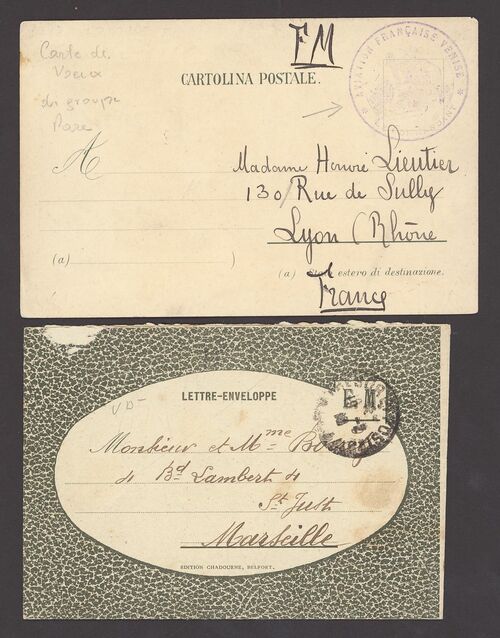 FM
Carte de
Voeux
du groupe
CARTOLINA POSTALE.
AVIATION FRANÇAISE VENISE
A
Madame Honoré Lieutier
130 Rue de Sully
Lyon (Rhône
(a)
(a) estero di destinazione.
France
LETTRE-ENVELOPPE
F. M.
Monsieur et Mme
4 Bd Lambert 4
St Just
Marseille
EDITION CHADOURNE, BELFORT.